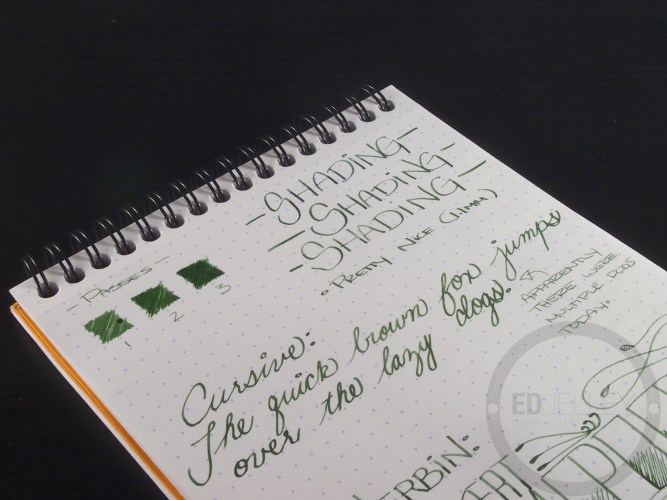 -SHADING-
-SHADING-
-SHADING-
• PRETTY NICE (1.1MM)
-PASSES-
1 2 3
Cursive:
The quick brown fox jumps
over the lazy dogs.
APPARENTLY
THERE WERE
MULTIPLE DOGS
TODAY.
ED JELLEY
ERBIN: